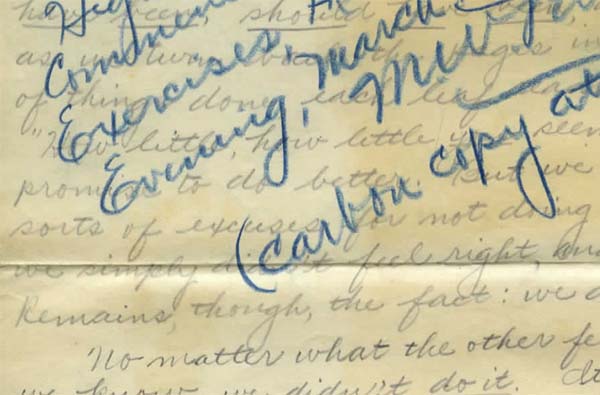 Commen
Exercises, March
Evening,
(carbon copy at
been, should
of things done, each
"How little, how little
promise to do better. But we
sorts of excuses for not doing
we simply didn't feel right, and
Remains, though, the fact: we d
No matter what the other fe
we know we didn't do it. It